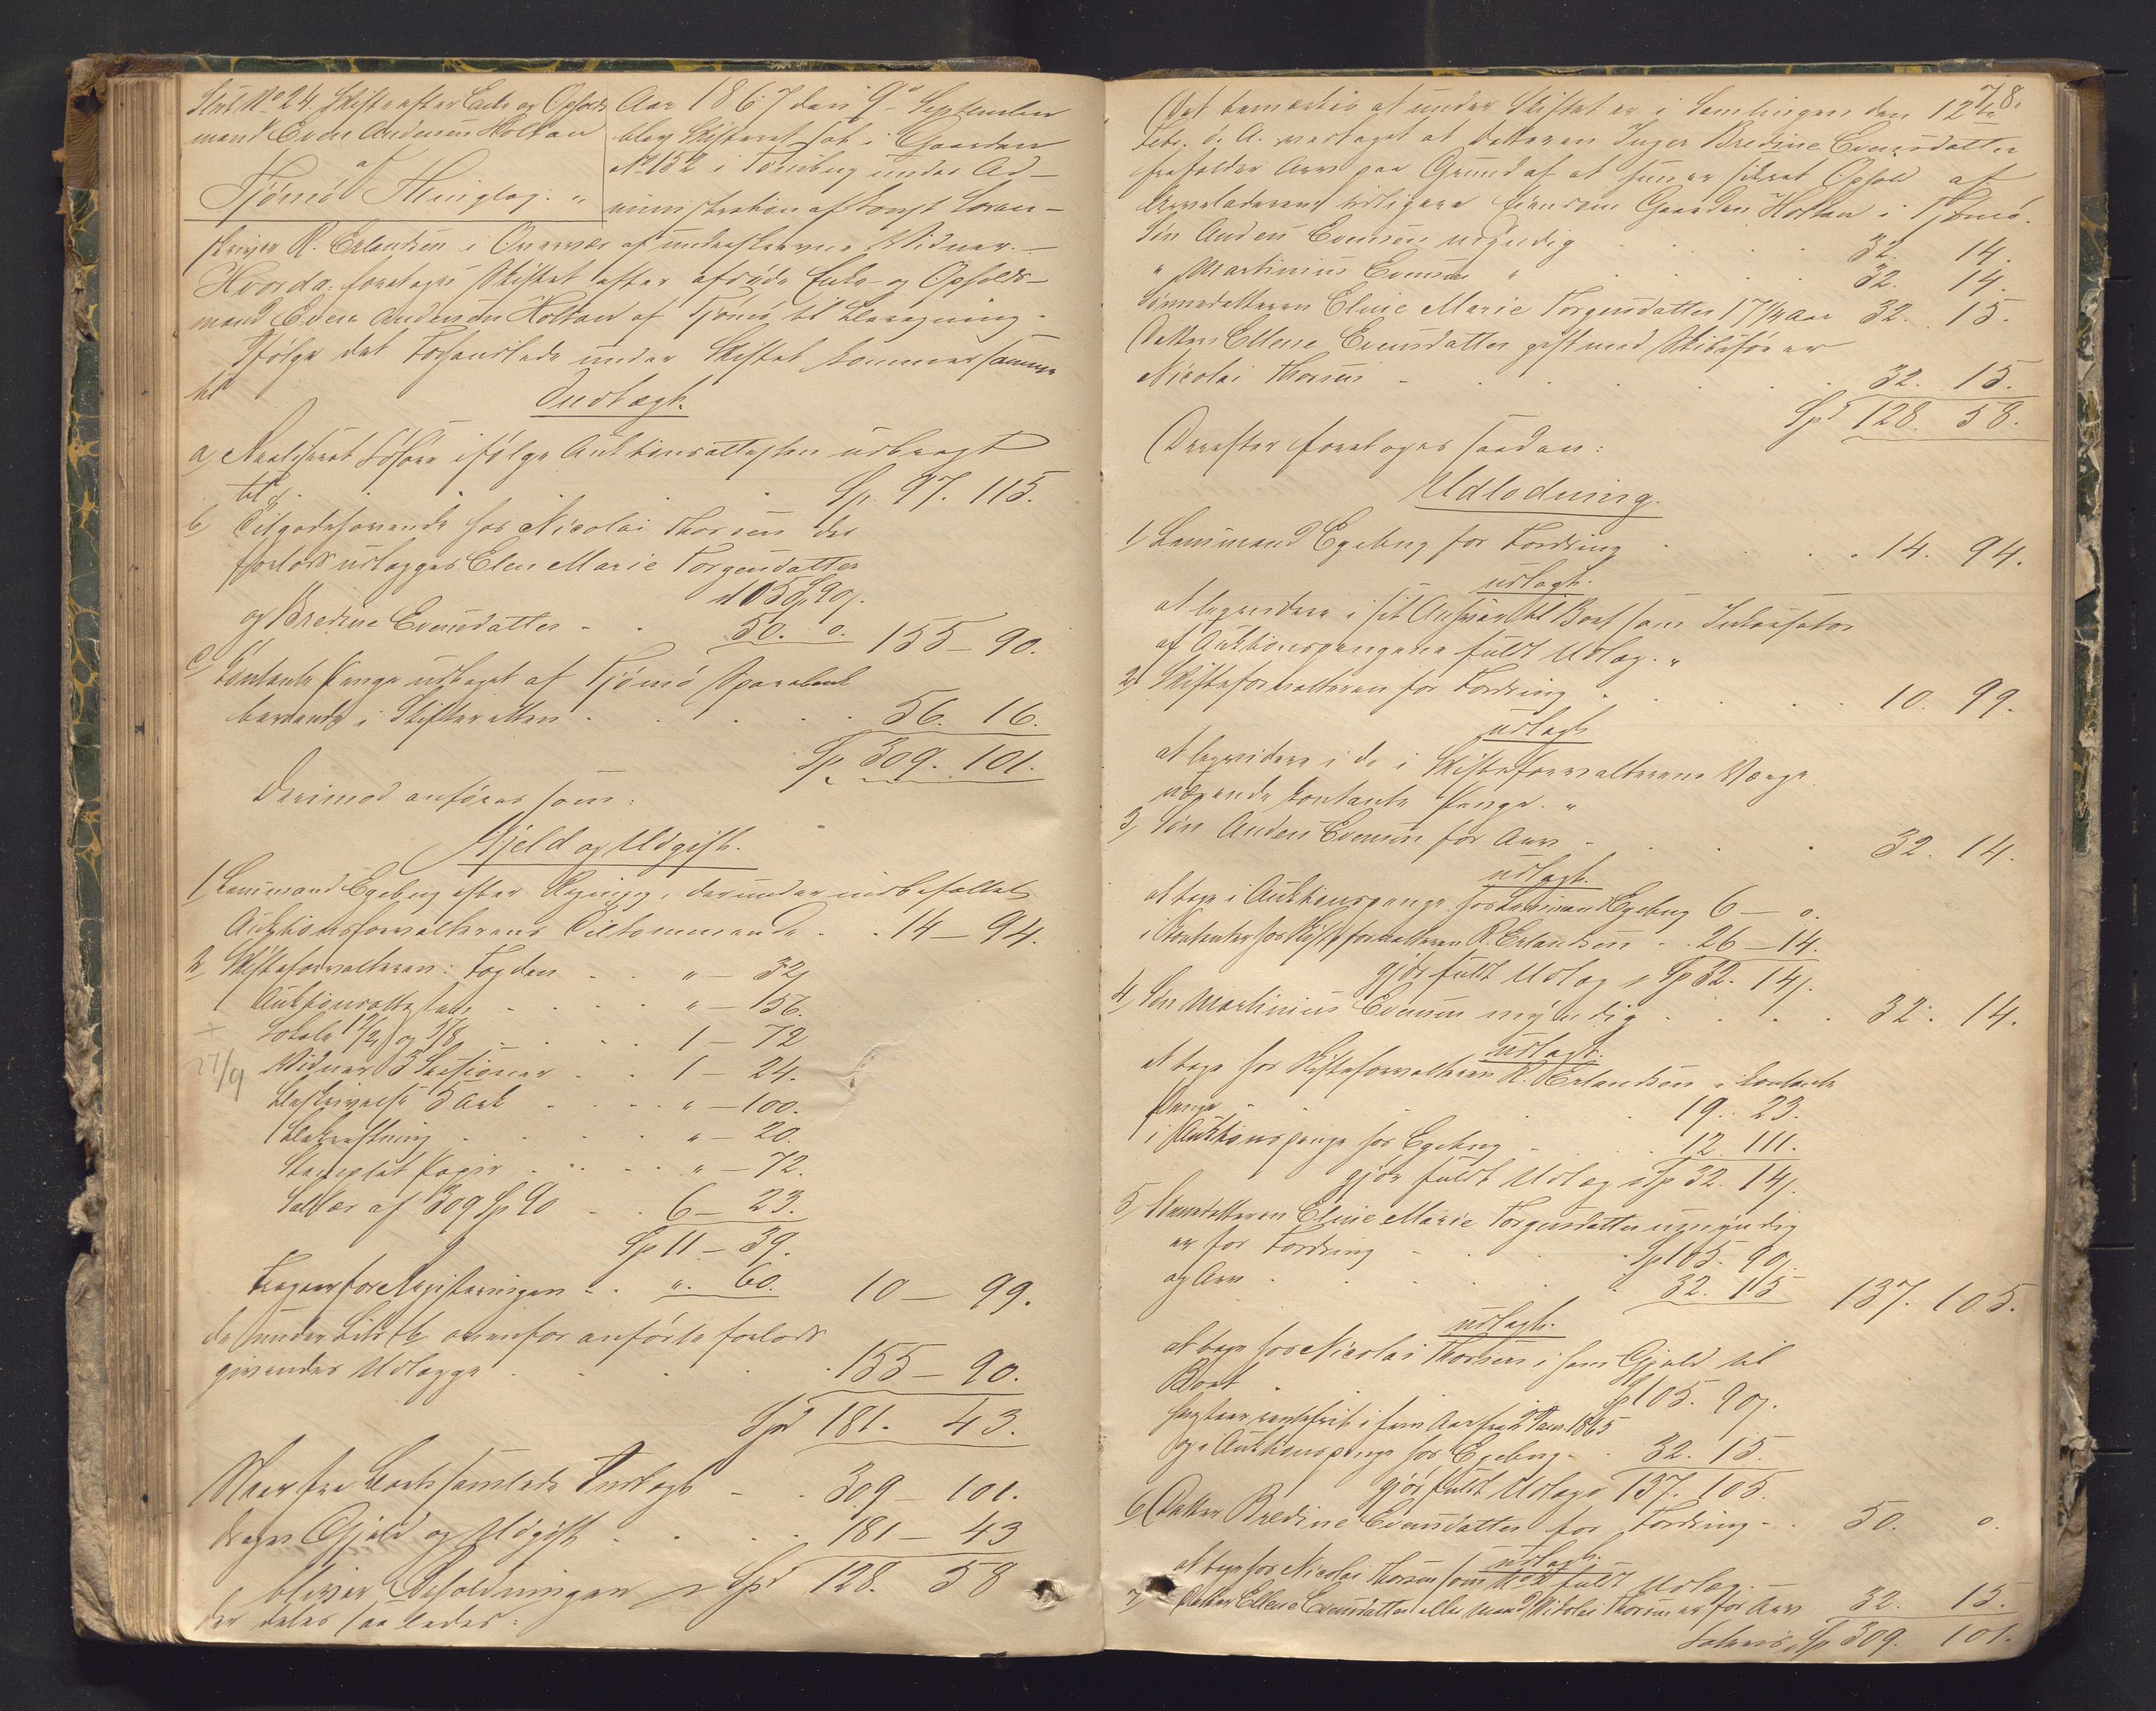 Slut No 24. Skifte efter Enke og Opholds
mand Even Andersen Holtan
af
Tjømø Thinglag.
Aar 1867 den 9de September
blev Skifteret sat i Gaarden
No 152 i Tønsberg under Ad-
ministration af Const Soren-
skriver R. Erlandsen i Overvær af underskrevne Vidner. —
Hvorda: foretoges Skiftet efter afdøde Enke- og Opholds-
mand Even Andersen Holtan af Tjømø til Beregning.
Ifølge det Forhandlede under Skiftet kommer samme
til
Indtægt.
a, Realiseret Løsøre ifølge Auktionsattesten udbragt
til . . . . Sp. 97. 115.
b, Tilgodehavende hos Nicolai Thorsen der
forlods udlægges Elen Marie Torgersdatter
105 Sp 90 s.
og Bredine Evensdatter - - 50. 0. 155 — 90.
c, Contante Penge udtaget af Tjømø Sparebank
beroende i Skifteretten . . . 56. 16.
Sp 309. 101.
Derimod anføres som:
Gjeld og Udgift.
1, Lensmand Egeberg efter Regning, derunder indbefattet
Auktionsforvalterens Tilkommende . . 14 — 94.
2, Skifteforvalteren: Fogden . . " — 32
Auktionsattesten . . . " — 156.
Lokale 12/2 og 3/8 . . . 1 — 72
Vidner 3 Sessioner . . 1 — 24.
27/9
Beskrivelse 5 Ark . . . " — 100.
Bekræftning . . . " — 20.
Stemplet Papir . . . " — 72.
Sallær af 309 Sp 90 . . 6 — 23.
Sp 11 — 39.
Fragaar for Registeringen . . " 60. 10 — 99.
de under Litr. b ovenfor anførte forlods
givendes Udlægge . . . 155 — 90.
Spd 181. 43.
Naar fra Boets samlede Indtægt . . 309 — 101.
drages Gjeld og Udgift . . . 181 — 43
bliver Beholdningen Spd 128. 58
der deles saaledes:
78.
Det bemærkes at under Skiftet er i Samlingen den 12te
Febr. d. A. vedtaget at Datteren Inger Bredine Evensdatter
frafalder Arv paa Grund af at hun er sikret Ophold af
Arveladerens tidligere Eiendom Gaarden Holtan i Tjømø.
Søn Anders Evensen myndig . . . 32. 14.
" Martinius Evensen " . . . 32. 14.
Sønnedatteren Eline Marie Torgersdatter 17 1/4 Aar 32. 15.
Datter Ellene Evensdatter gift med Skibsfører
Nicolai Thorsen . . . . 32. 15.
Spd 128. 58.
Derefter foretoges saadan:
Udlodning.
1, Lensmand Egeberg for Fordring . . . 14. 94.
udlagt.
at liqvidere i sit Ansvar til Boet som Inkassator
af Auktionspengene fuldt Udlæg. "
2, Skifteforvalteren for Fordring . . . 10. 99.
udlagt
at liqvidere i de i Skifteforvalterens Værge
værende contante Penge. "
3, Søn Anders Evensen for Arv . . . 32. 14.
udlagt.
at tage i Auktionspenge hos Lensmand Egeberg 6 — 0.
i Kontanter hos Skifteforvalteren R. Erlandsen . . 26 — 14.
gjør fuldt Udlæg Sp 32. 14 s.
4, Søn Martinius Evensen myndig . . . 32. 14.
udlagt.
at tage hos Skifteforvalteren R. Erlandsen i Contante
Penge . . . 19. 23.
i Auktionspenge hos Egeberg . . 12. 111.
gjør fuldt Udlæg Sp 32. 14 s.
5, Sønnedatteren Eline Marie Torgersdatter umyndig
er for Fordring . . . Sp 105. 90 s.
og Arv . . . 32. 15 137. 105.
udlagt.
at tage hos Nicolai Thorsen i hans Gjeld til
Boet . . . Sp 105. 90 s.
henstaar rentefrit i fem Aar fra 2 Janr. 1865
og i Auktionspenge hos Egeberg . . 32. 15.
gjør fuldt Udlæg 137. 105.
6, Datter Bredine Evensdatter for Fordring . . 50. 0.
udlagt.
at tage hos Nicolai Thorsen som fuldt Udlæg. —
7, Datter Ellene Evensdatter eller Mand Nikolai Thorsen er for Arv 32. 15.
Lateris Sp 309. 101.